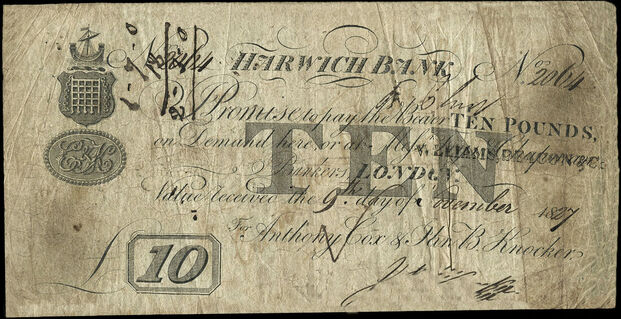 HARWICH BANK
No. 2064
2064
I Promise to pay the Bearer TEN POUNDS,
on Demand here, or at Messrs.
Bankers LONDON.
TEN
Value received the 9th. day of November 1807
For Anthony Cox & Jno. B. Knocker
£ 10